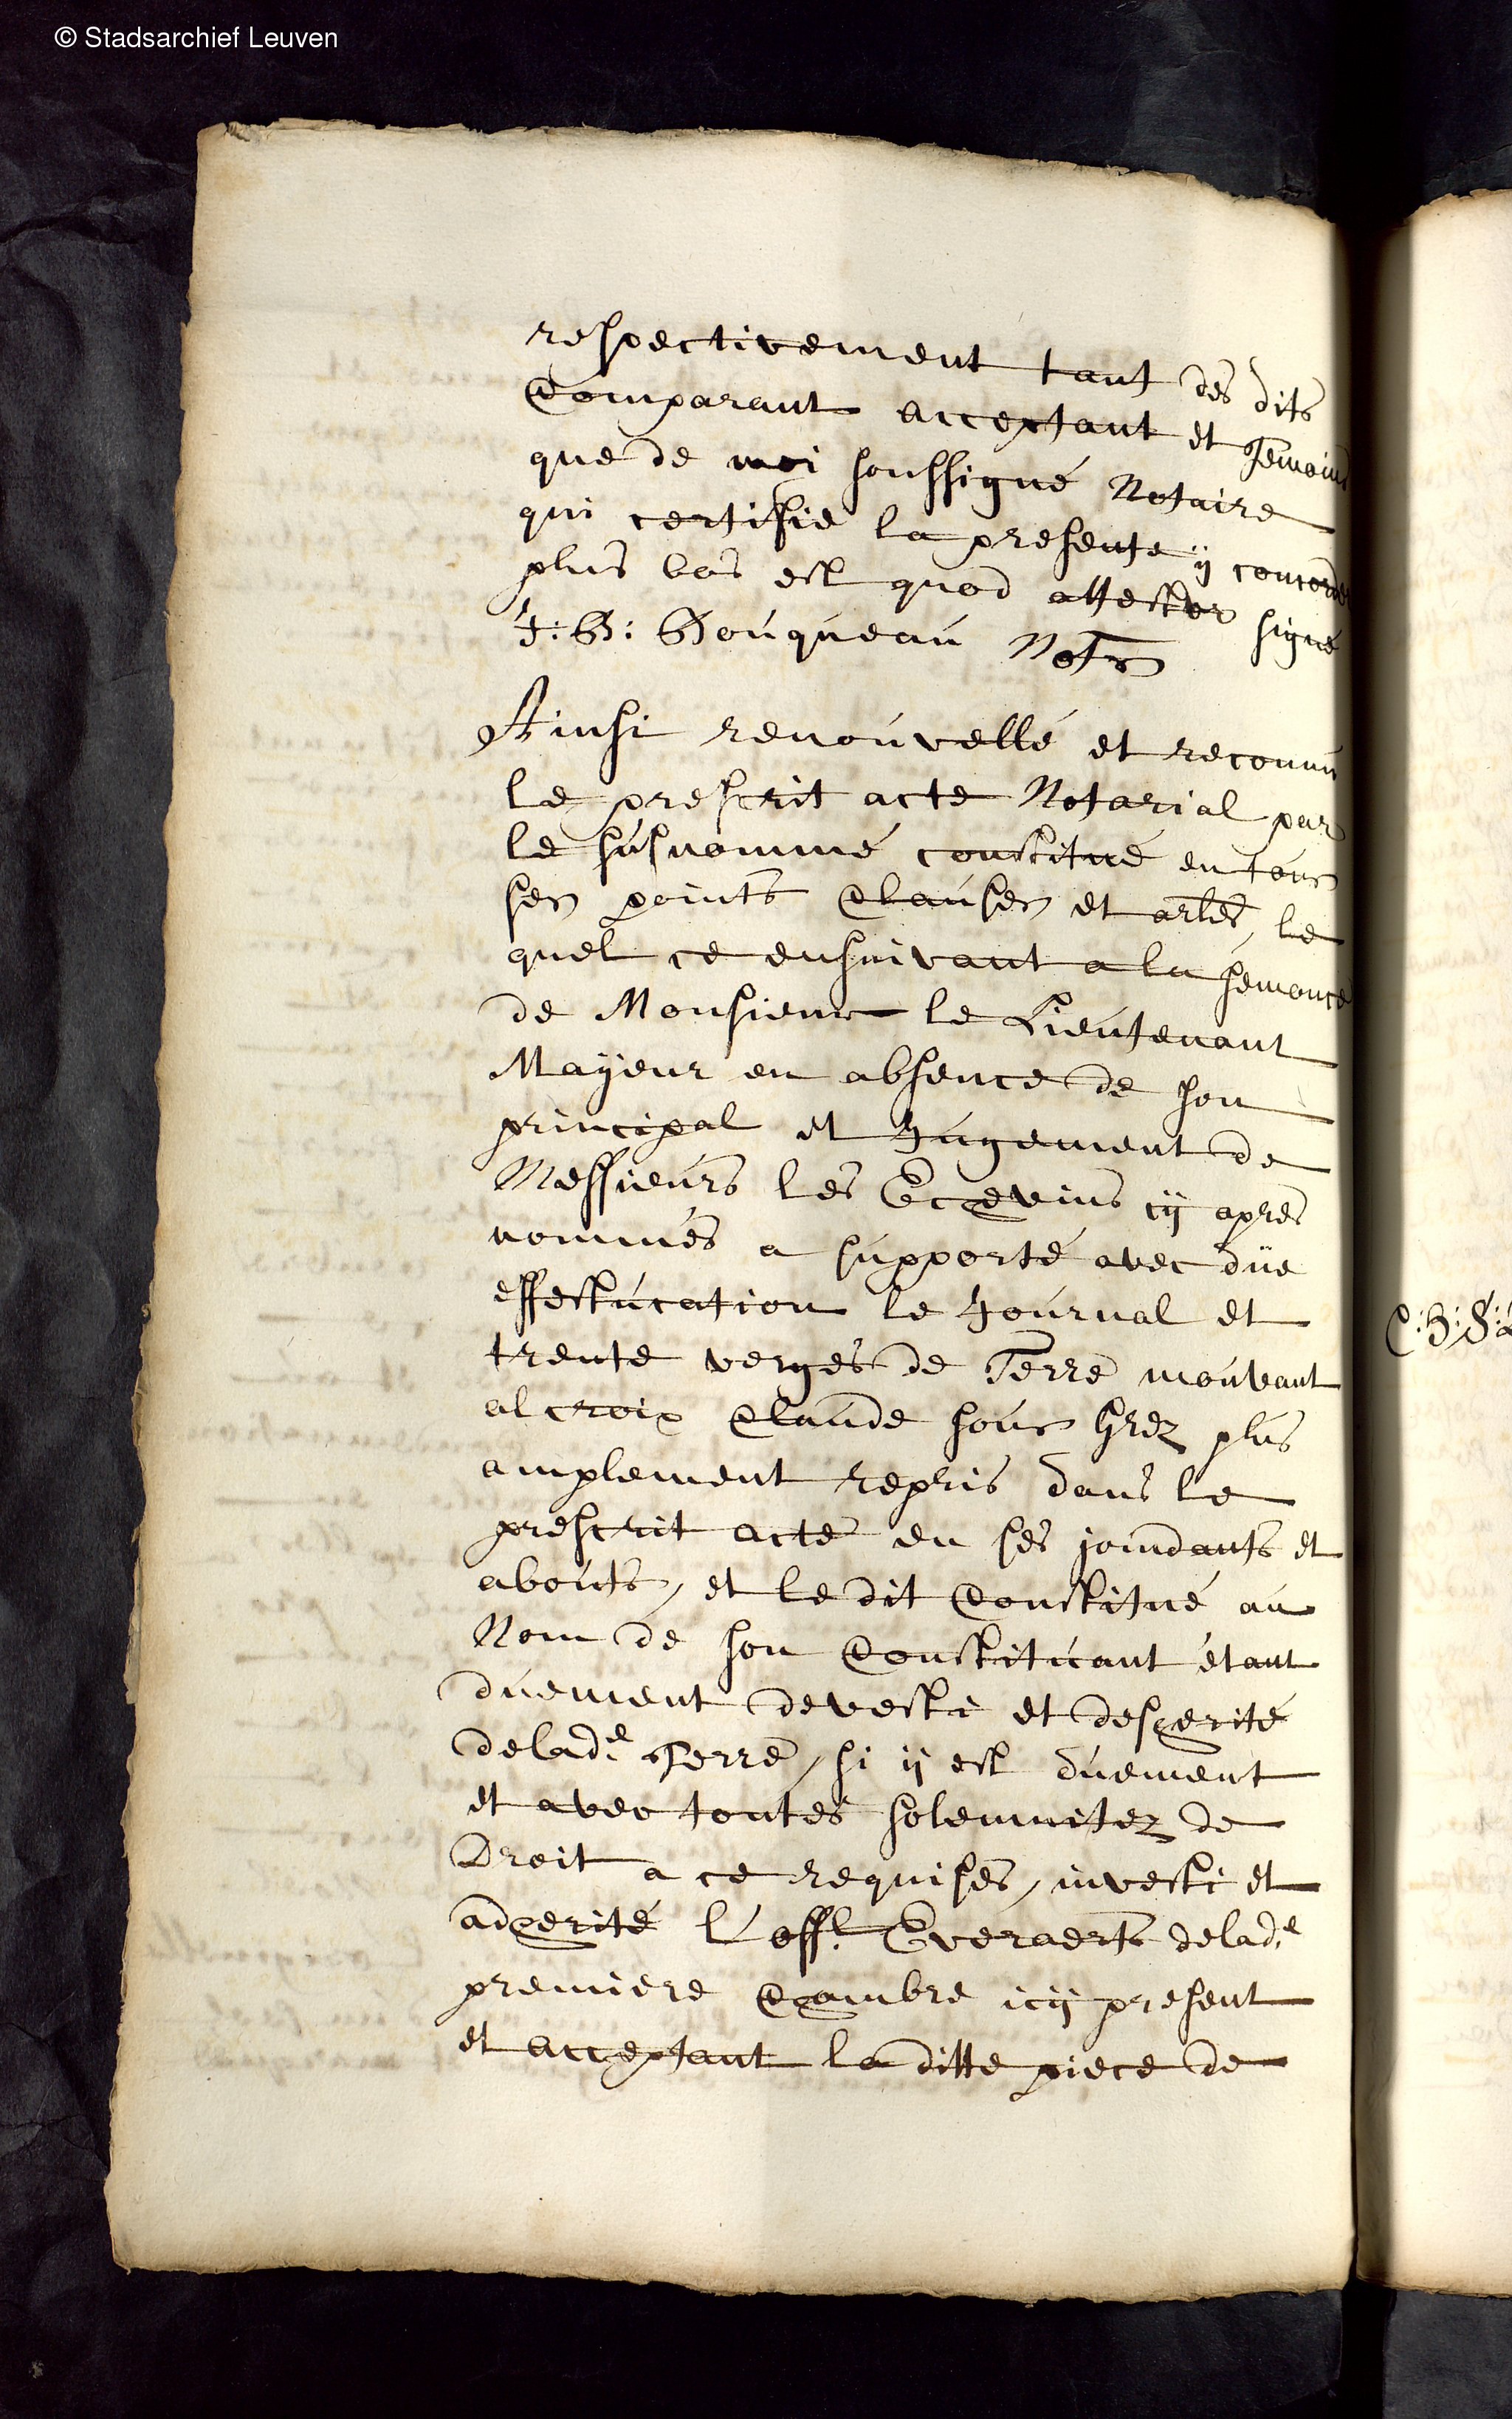 © Stadsarchief Leuven
respectivement tant des dits
Comparant acceptant et Temoins
que de moi soussigné Notaire
qui certifie la presente ÿ concorder
plus bas est quod attestor signé
J: B: Bouqueau Notrs
Ainsi renouvellé et reconnu
le prescrit acte Notarial par
le susnommé constitué en tous
ses points Clauses et arles, le
quel ce ensuivant a la semonce
de Monsieur le Lieutenant
Mayeur en absence de son
principal et Jugement de
Messieurs les Echevins cÿ apres
nommés a supporté avec düe
effestucation le Journal et
trente verges de Terre mouvant
al croix Claude sous Grez plus
amplement repris dans le
prescrit acte en ses joindants et
abouts, et le dit Constitué au
Nom de son Constituant étant
duement devesti et desherité
delade Terre, si ÿ est duement
et avec toutes solemnitez de
Droit a ce requises, investi et
adherité l'offl Everaerts delade
premiere Chambre icÿ present
et acceptant la ditte piece de